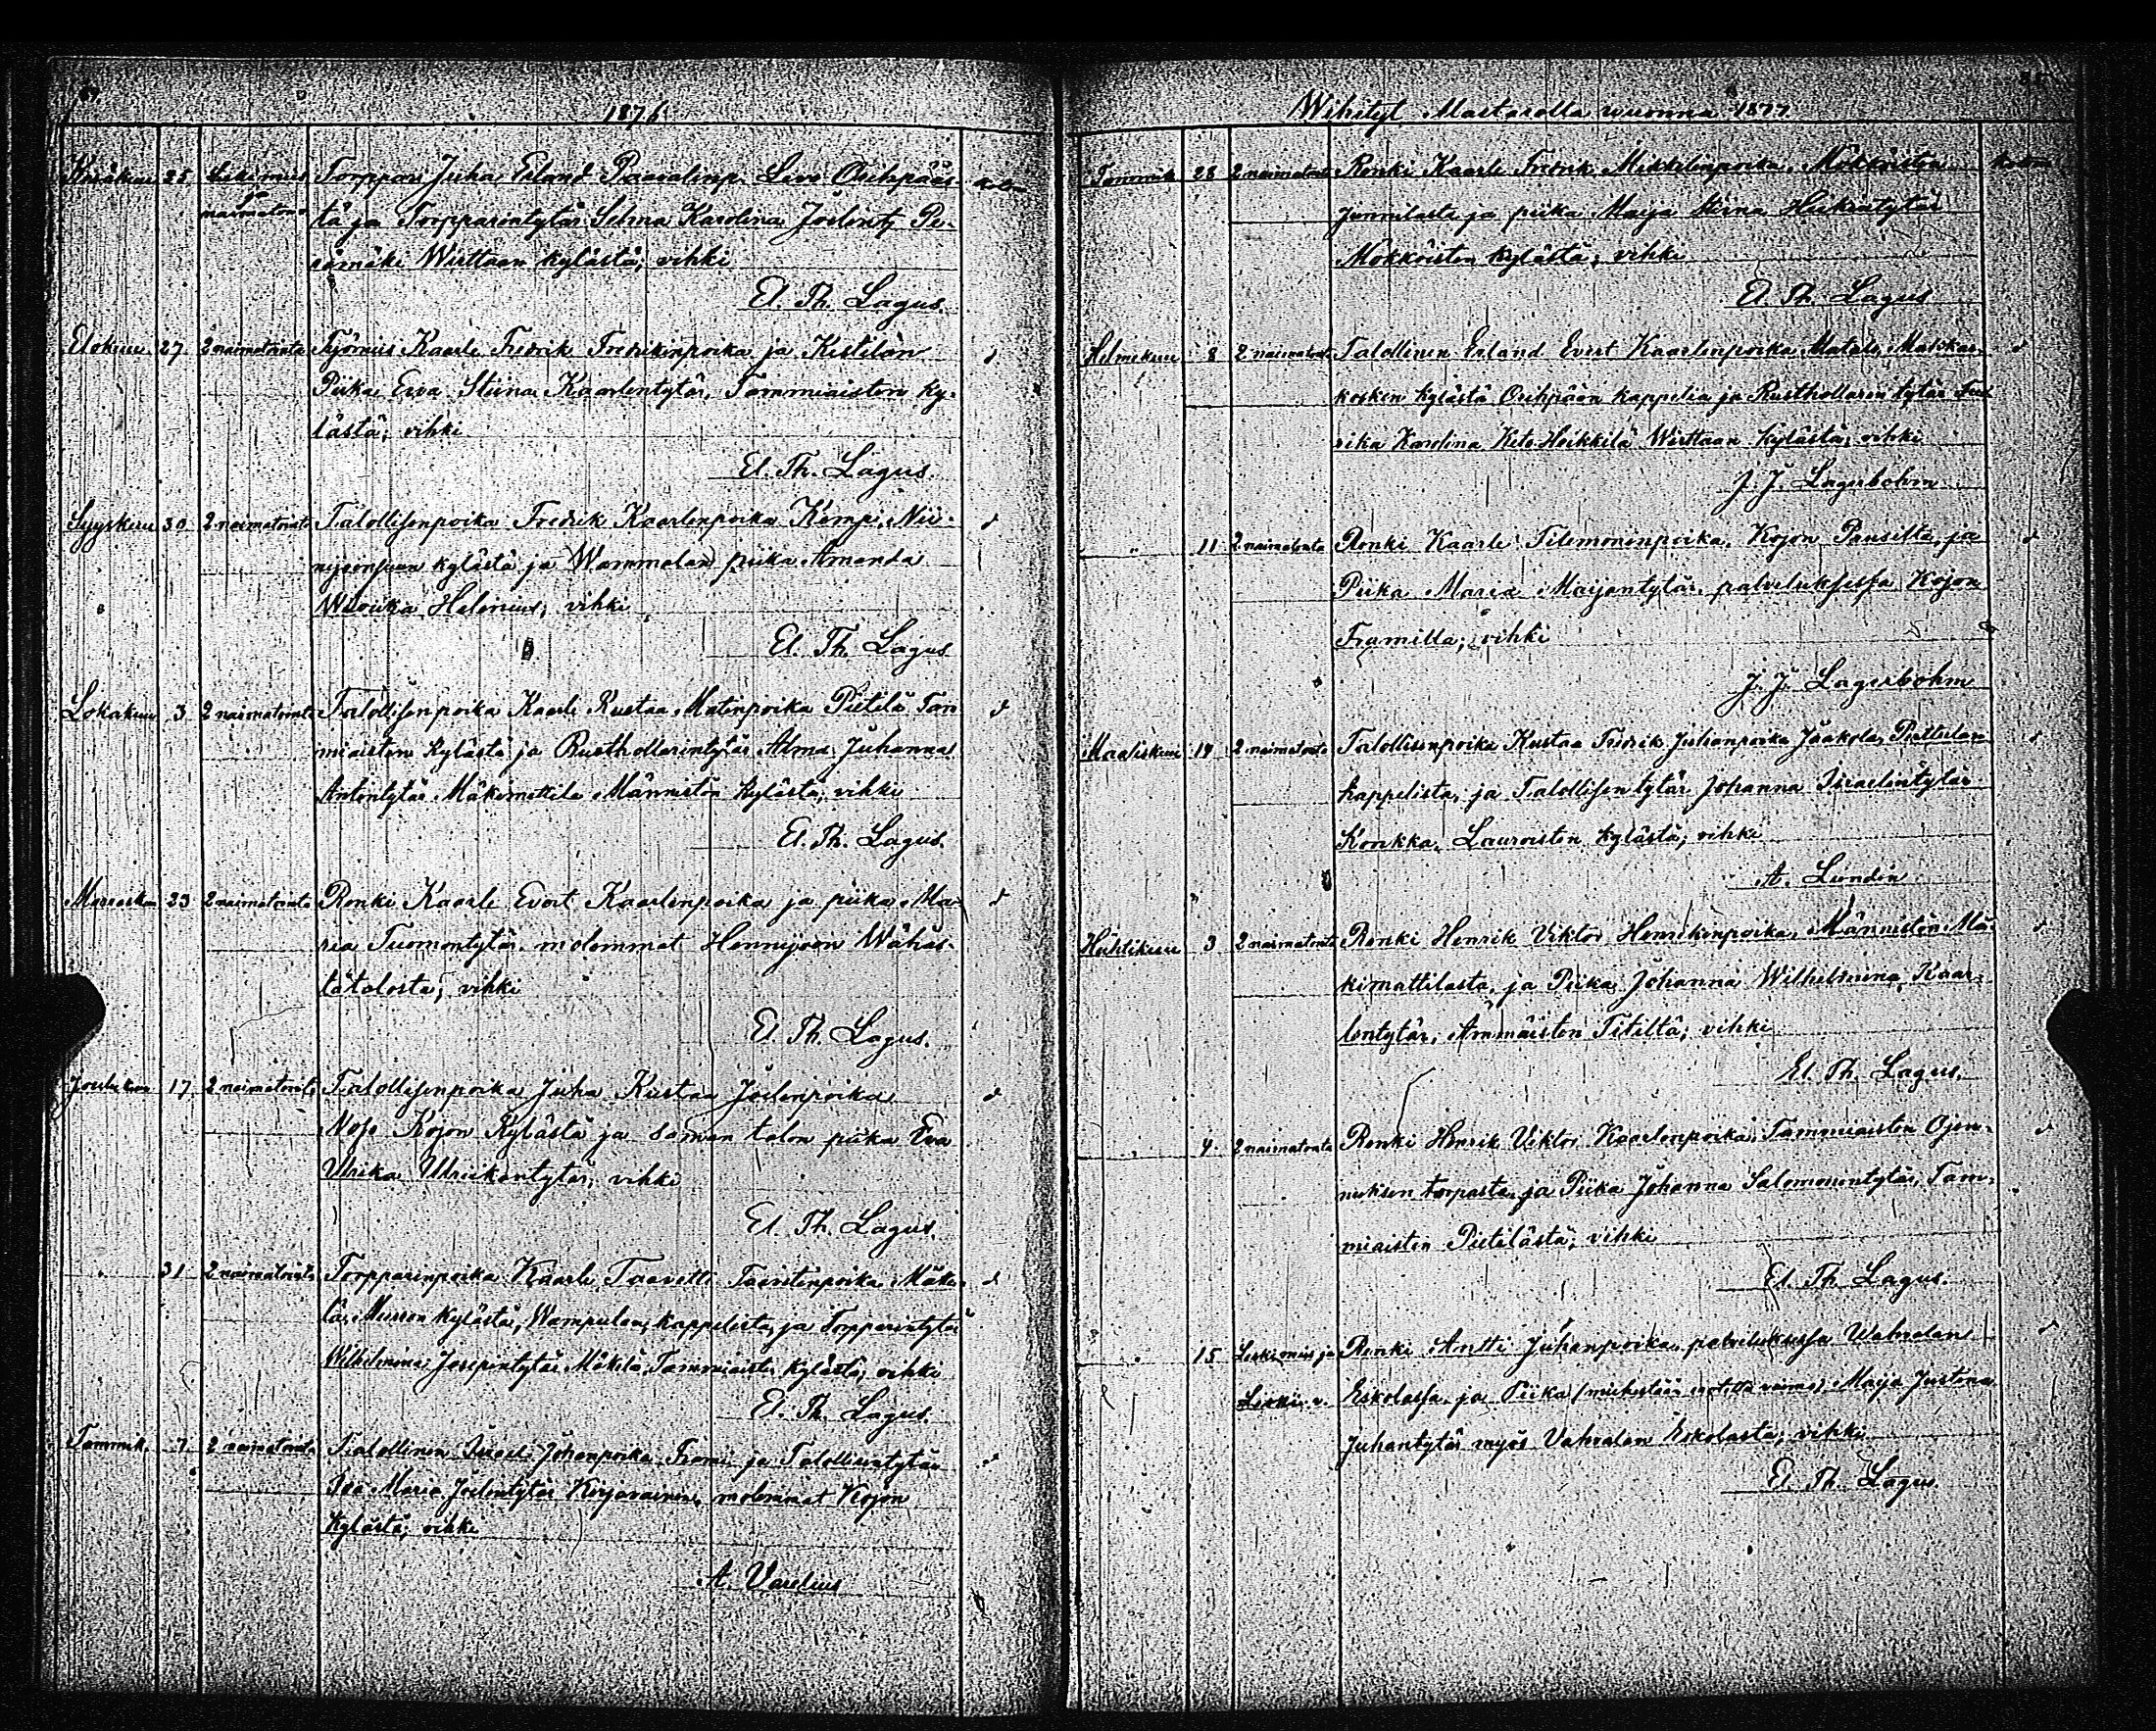 1876
Kesäkuu 25 Leskimies ja naimaton Torppari Juha Erland Paavalinp. Levo Orihpääs-
tä ja Torpparintytär Selma Karolina Joelintr Pe-
rämäki Wirttaan kylästä; vihki
El. Th. Lagus.
Elokuu 27 2 naimatonta Kaarle Fredrik Fredrikinpoika ja Kestilän
Piika Eva Stiina Kaarlentytär, Tammiaisten ky-
lästä; vihki
El. Th. Lagus.
Syyskuu 30 2 naimatonta Talollisenpoika Fredrik Kaarlenpoika Kempi, Nii-
nijoensuun kylästä ja Wammalan piika Amanda
Helenius; vihki
El. Th. Lagus
Lokakuu 3 2 naimatonta Talollisenpoika Kaarle Kustaa Matinpoika Pietilä Tam
miaisten kylästä ja Rusthollarintytär Alma Juhanna
Antintytär Mäkimattila Männistön kylästä; vihki
El. Th. Lagus.
Marrask. 23 2 naimatonta Renki Kaarle Evert Kaarlenpoika ja piika Ma-
ria Tuomontytär molemmat Hennijoen Wähäs-
tätalosta; vihki
El. Th. Lagus.
Jouluku 17 2 naimatonta Talollisenpoika Juha Kustaa Joelenpoika
Kojon Kylästä ja saman talon piika Eva
Ulrika Ulriikantytär; vihki
El. Th. Lagus.
" 31 2 naimatonta Torpparinpoika Kaarle Taavetti Taavetinpoika Mäke-
lä, kylästä, Wampulan kappelista, ja Torpparintytär
Wilhelmina Josepintytär Mäkilä, Tammiaisten kylästä; vihki
El. Th. Lagus.
Tammik. 7 2 naimatonta Talollinen Juhanpoika Frami ja Talollisentytär
Eva Maria Joelintytär Kirjavainen, molemmat Kojon
kylästä; vihki
A. Varelius
Wihityt Marttilalla wuonna 1877
Tammik 28 2 naimatonta Renki Kaarle Fredrik Mikkelinpoika, Mökköisten
Junnilasta ja piika Maija Stiina Heikintytär
Mökköisten kylästä; vihki
El. Th. Lagus
Helmikuu 8 2 naimatonta Talollinen Erland Evert Kaarlenpoika Matala, Makkar-
kosken kylästä Orihpään kappelia ja Rusthollarin tytär Fred
rika Karolina Keto-Heikkilä Wirttaan kylästä; vihki
J. J. Lagerbohm
" 11 2 naimatonta Renki Kaarle Filemoninpoika, Kojon Pausilta, ja
Piika Maria Maijantytär, palveluksessa Kojon
Framilla; vihki
J. J. Lagerbohm
Maaliskuu 14 2 naimatonta Talollisenpoika Kustaa Fredrik Juhanpoika Jaakola,
kappelista, ja Talollisentytär Johanna Israelintytär
Konkka, Lauroisten kylästä; vihki
A. Lundén
Huhtikuu 3 2 naimatonta Renki Henrik Viktor Henrikinpoika, Männistön Mä-
kimattilasta, ja Piika Johanna Wilhelmina Kaar-
lentytär, Ämmäisten Titiltä; vihki
El. Th. Lagus.
" 4. 2 naimatonta Renki Henrik Viktor Kaarlenpoika, Tammiaisten Ojan-
nuksen torpasta, ja Piika Johanna Salomonintytär, Tam-
miaisten Pietilästä; vihki
El. Th. Lagus.
" 15 Leskimies ja Renki Antti Juhanpoika, palveluksessa Wahvalan
Leski v. Eskolassa, ja Piika (miehestään erotettu vaimo) Maija Justina
Juhantytär myös Vahvalan Eskolasta; vihki
El. Th. Lagus.